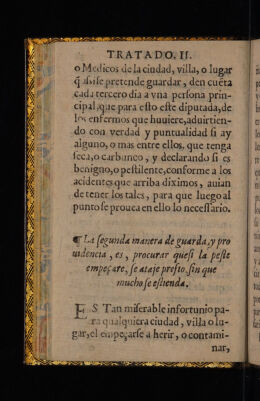 TRATADO. II.
o Medicos de la ciudad, villa, o lugar
q̃ assi se pretende guardar, den cuẽta
cada tercero dia a vna persona prin-
cipal, que para esto este diputada, de
los enfermos que huuiere, aduirtien-
do con verdad y puntualidad si ay
alguno, o mas entre ellos, que tenga
seca, o carbunco, y declarando si es
benigno, o pestilente, conforme a los
acidentes que arriba diximos, auian
de tener los tales, para que luego al
punto se prouea en ello lo necessario.
¶ La segunda manera de guarda, y pro
uidencia, es, procurar que si la peste
empeçare, se ataje presto, sin que
mucho se estienda.
ES Tan miserable infortunio pa-
ra qualquiera ciudad, villa o lu-
gar, el empeçarse a herir, o contami-
nar,